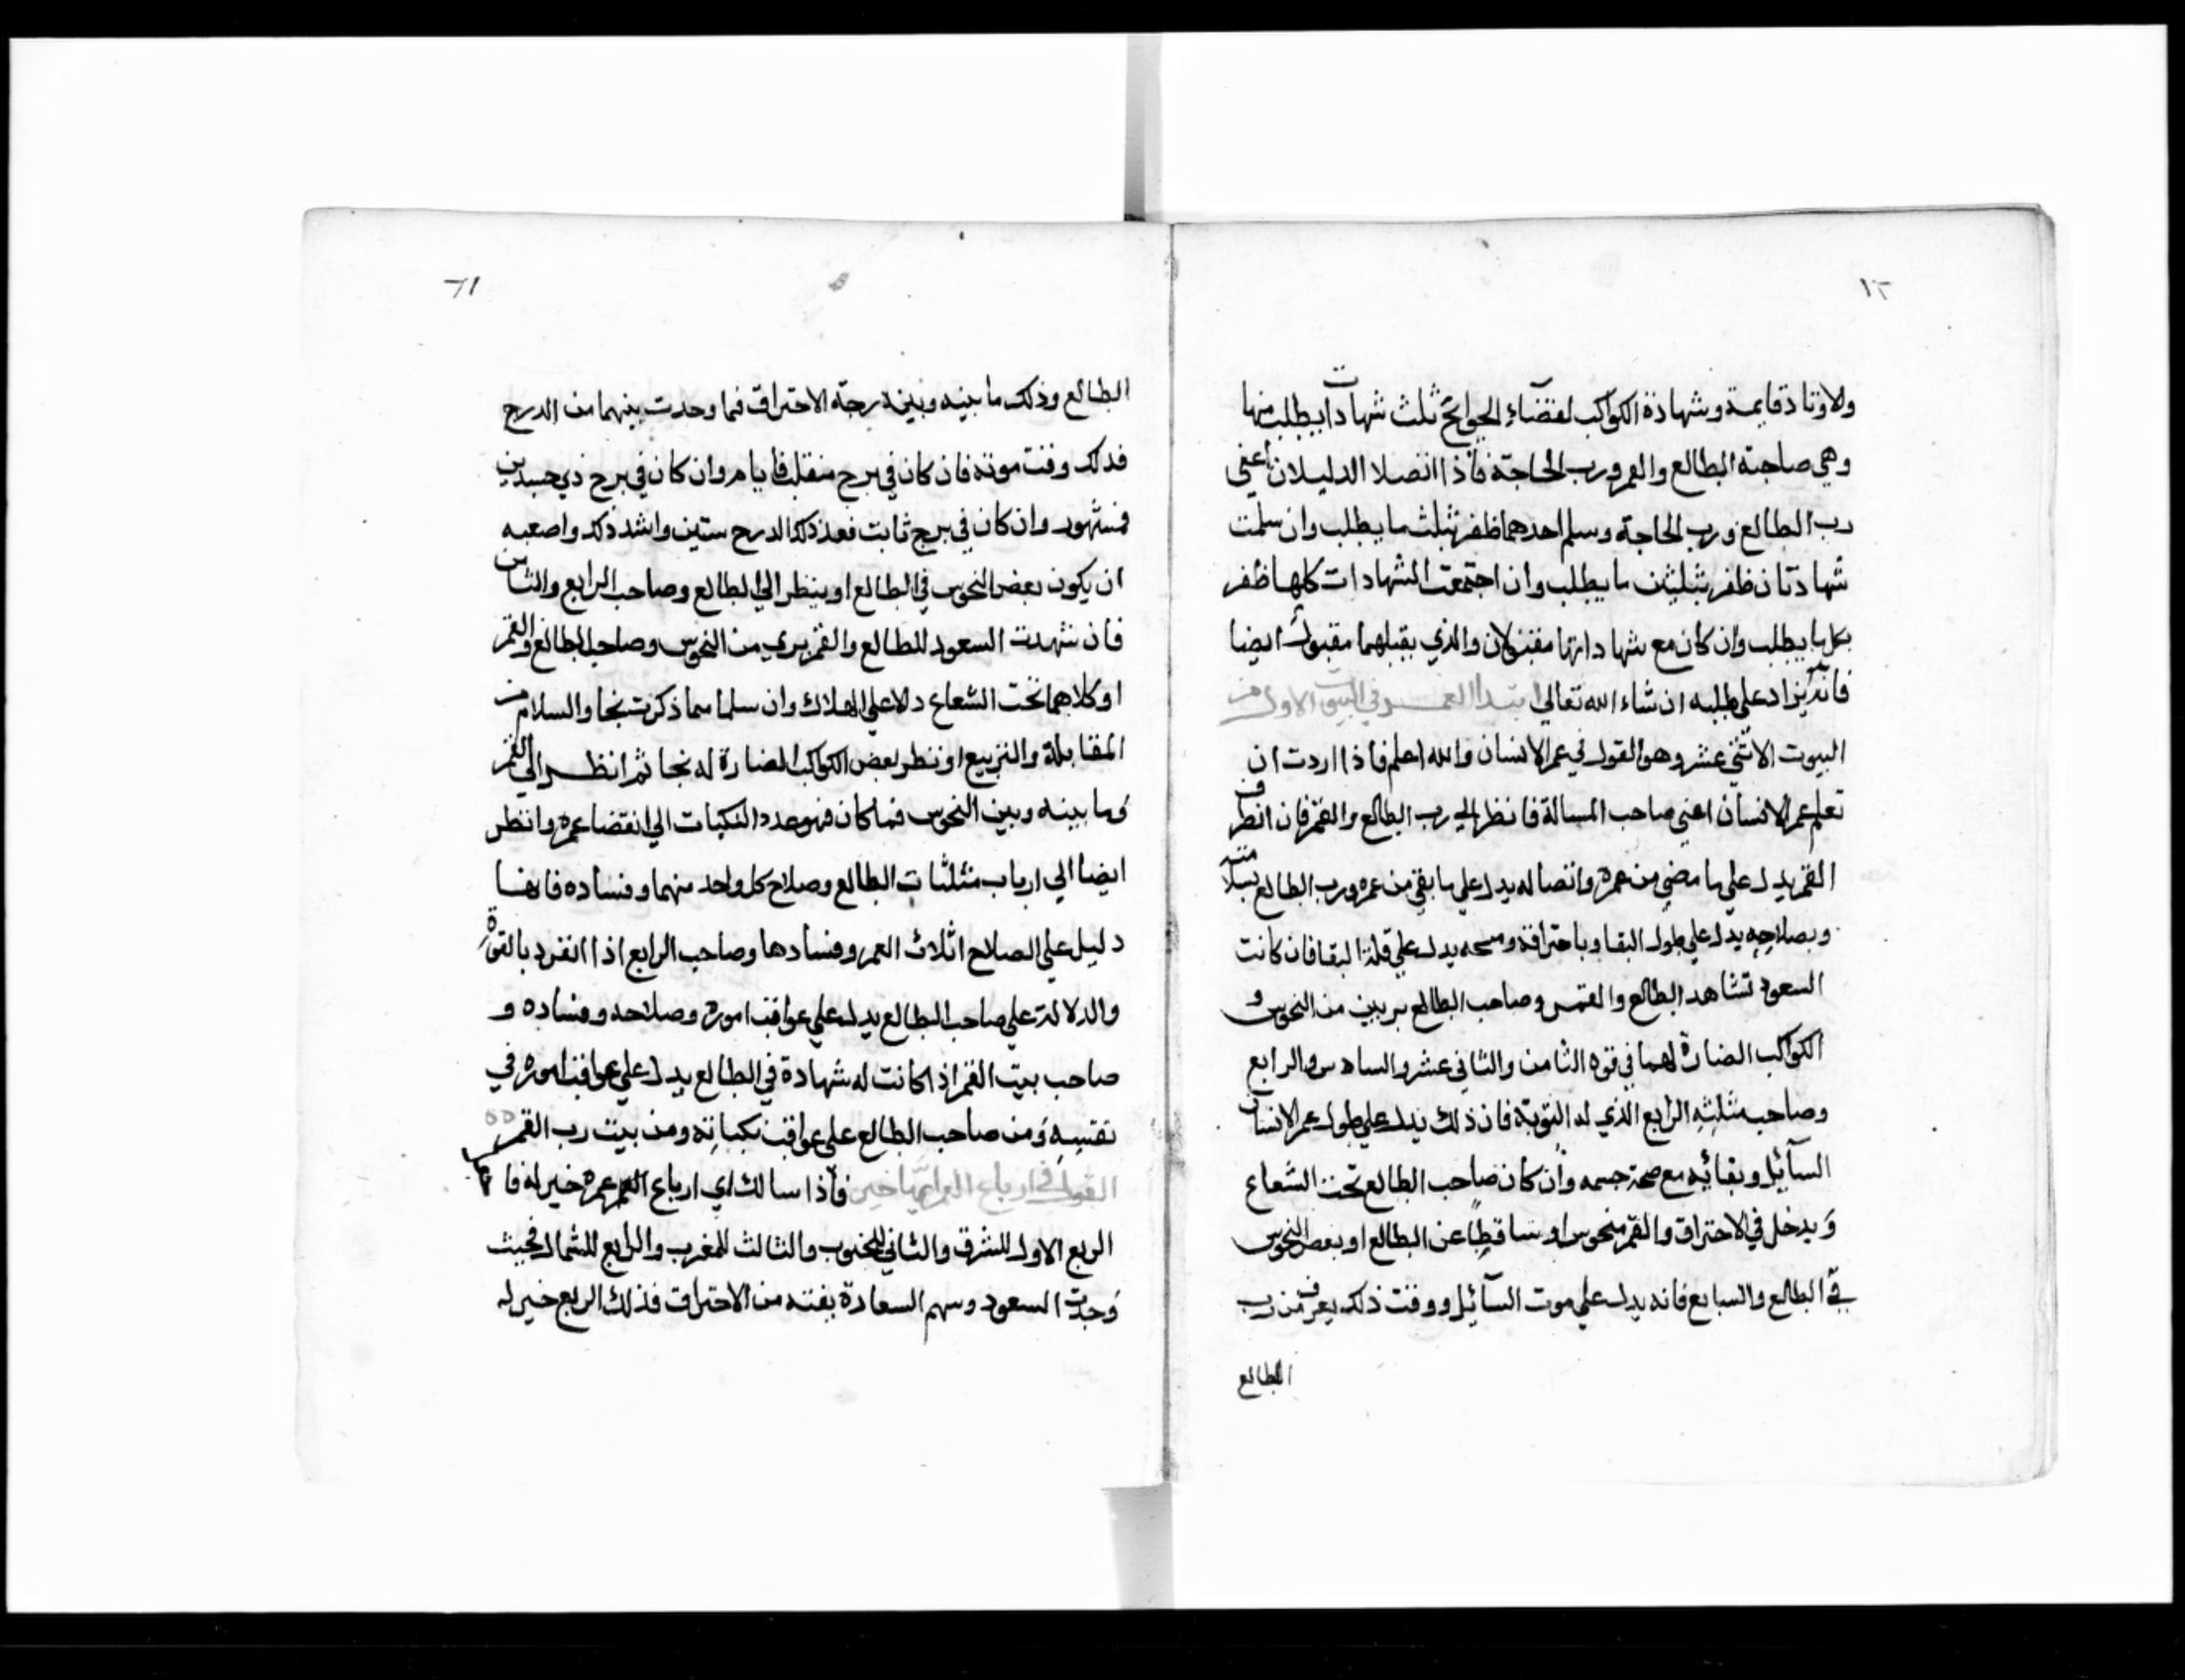 ١٢
والاوتاد قايمة وشهادة الكواكب لقضاء الحوائج ثلث شهادات يطلب منها
وهي صاحبة الطالع والقمر ورب الحاجة فاذا اتصلا الدليلان اعني
رب الطالع ورب الحاجة وسلم احدهما ظفر بثلث ما يطلب وان سلمت
شهادتان ظفر بثلثين ما يطلب وان اجتمعت الشهادات كلها ظفر
بكل ما يطلب وان كان مع شهاداتها والذي يقبلهما ايضا
فانه يزاد على طلبه ان شاء الله تعالى ابتدا العمر في البيت الاول من
البيوت الاثني عشر وهو القول في عمر الانسان والله اعلم فاذا اردت ان
تعلم عمر الانسان اعني صاحب المسالة فانظر الي رب الطالع والقمر فان
القمر يدل علي ما مضي من عمره واتصاله يدل علي ما بقي من عمره ورب الطالع
وبصلاحه يدل علي طول البقا وباحتراقه يدل علي قلة البقا فان كانت
السعود تشاهد الطالع والقمر وصاحب الطالع بريين من النحوس و
الكواكب الضارة لهما في قوه الثامن والثاني عشر والسادس والرابع
وصاحب مثلثه الرابع الذي له النوبة فان ذلك يدل علي طول عمر الانسان
السآئل وبقائه مع صحة جسمه وان كان صاحب الطالع تحت الشعاع
ويدخل في الاحتراق والقمر منحوس او ساقطا عن الطالع او بعض النحوس
في الطالع والسابع فانه يدل علي موت السآئل ووقت ذلك يعرف من رب
الطالع
الطالع وذلك ما بينه وبين درجة الاحتراق فما وجدت بينهما من الدرج
فذلك وقت موته فان كان في برج منقلب فايام وان كان في برج ذي جسدين
فشهور وان كان في برج ثابت فعد ذلك الدرج سنين واشد ذلك واصعبه
ان يكون بعض النحوس في الطالع او ينظر الي الطالع وصاحب الرابع والثامن
فان شهدت السعود للطالع والقمر بري من النحوس وصاحب الطالع والقمر
او كلاهما تحت الشعاع دلا علي الهلاك وان سلما مما ذكرت نجا والسلام من
المقابلة والتربيع او نظر بعض الكواكب الضارة له نجا ثم انظر الي القمر
وما بينه وبين النحوس فما كان فهو عدد النكبات الي انقضا عمره وانظر
ايضا الي ارباب مثلثات الطالع وصلاح كل واحد منهما وفساده فانها
دليل علي الصلاح اثلاث العمر وفسادها وصاحب الرابع اذا انفرد بالقوة
والدلالة علي صاحب الطالع يدل علي عواقب اموره وصلاحه وفساده و
صاحب بيت القمر اذا كانت له شهادة في الطالع يدل علي عواقب اموره في
نفسه ومن صاحب الطالع علي عواقب نكباته ومن بيت رب القمر
القول في ارباع العمر ايها خير فاذا سالك اي ارباع العمر عمره خير له فا
الربع الاول للشرق والثاني للجنوب والثالث للمغرب والرابع للشمال فحيث
وجدت السعود وسهم السعادة بقته من الاحتراق فذلك الربع خير له